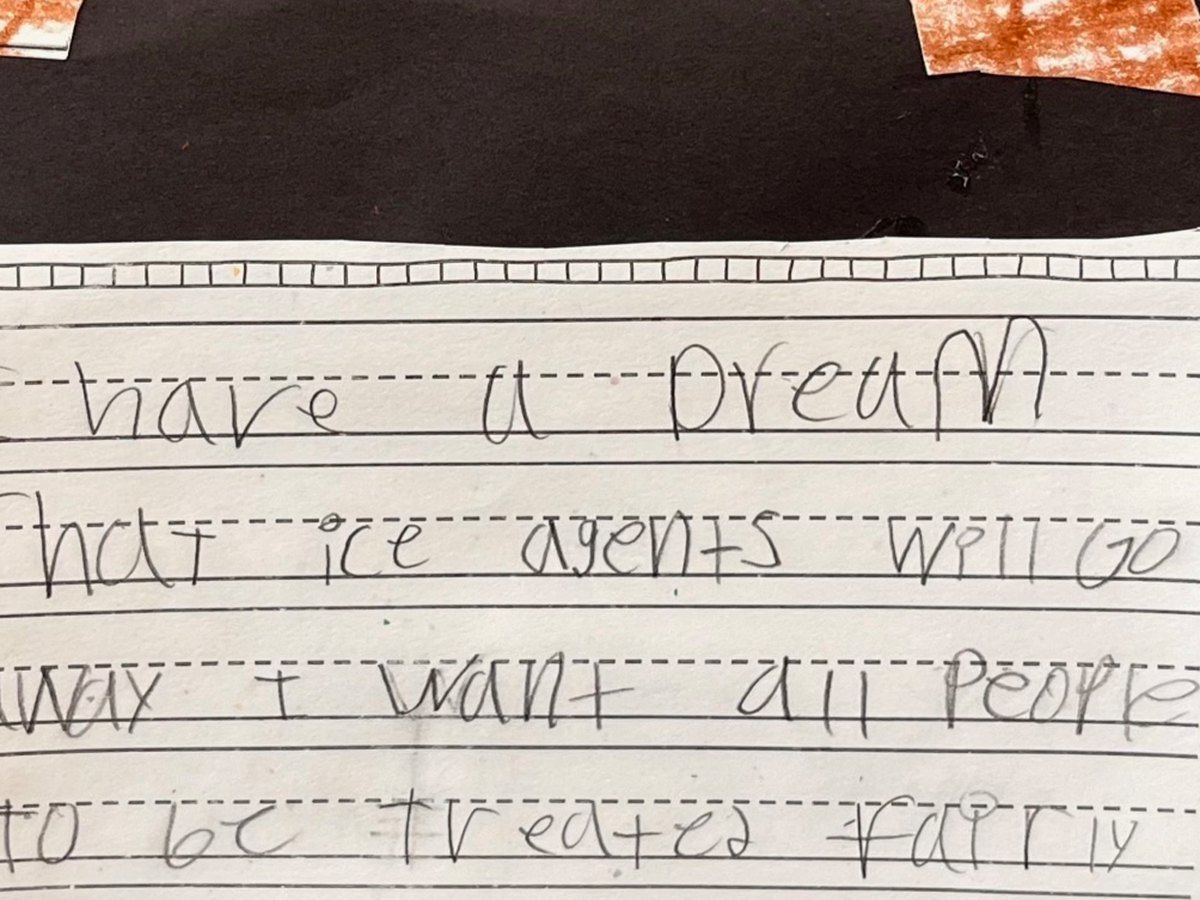 I have a Dream
that ice agents will GO
away I want all People
to be treated fairly